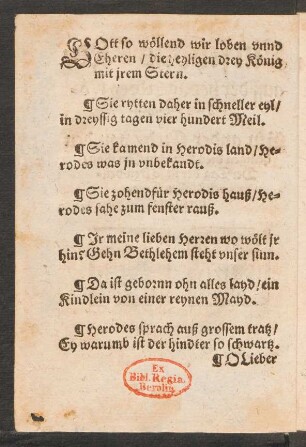 GOtt so wöllend wir loben vnnd
Eheren / die heyligen drey König
mit jrem Stern.
¶ Sie rytten daher in schneller eyl /
in dreyssig tagen vier hundert Meil.
¶ Sie kamend in Herodis land / He-
rodes was jn vnbekandt.
¶ Sie zohend für Herodis hauß / He-
rodes sahe zum fenster rauß.
¶ Jr meine lieben Herren wo wölt jr
hin? Gehn Bethlehem steht vnser sinn.
¶ Da ist gebornn ohn alles layd / ein
Kindlein von einer reynen Mayd.
¶ Herodes sprach auß grossem tratz /
Ey warumb ist der hindter so schwartz.
¶ O Lieber
Ex
Bibl. Regia
Berolin.